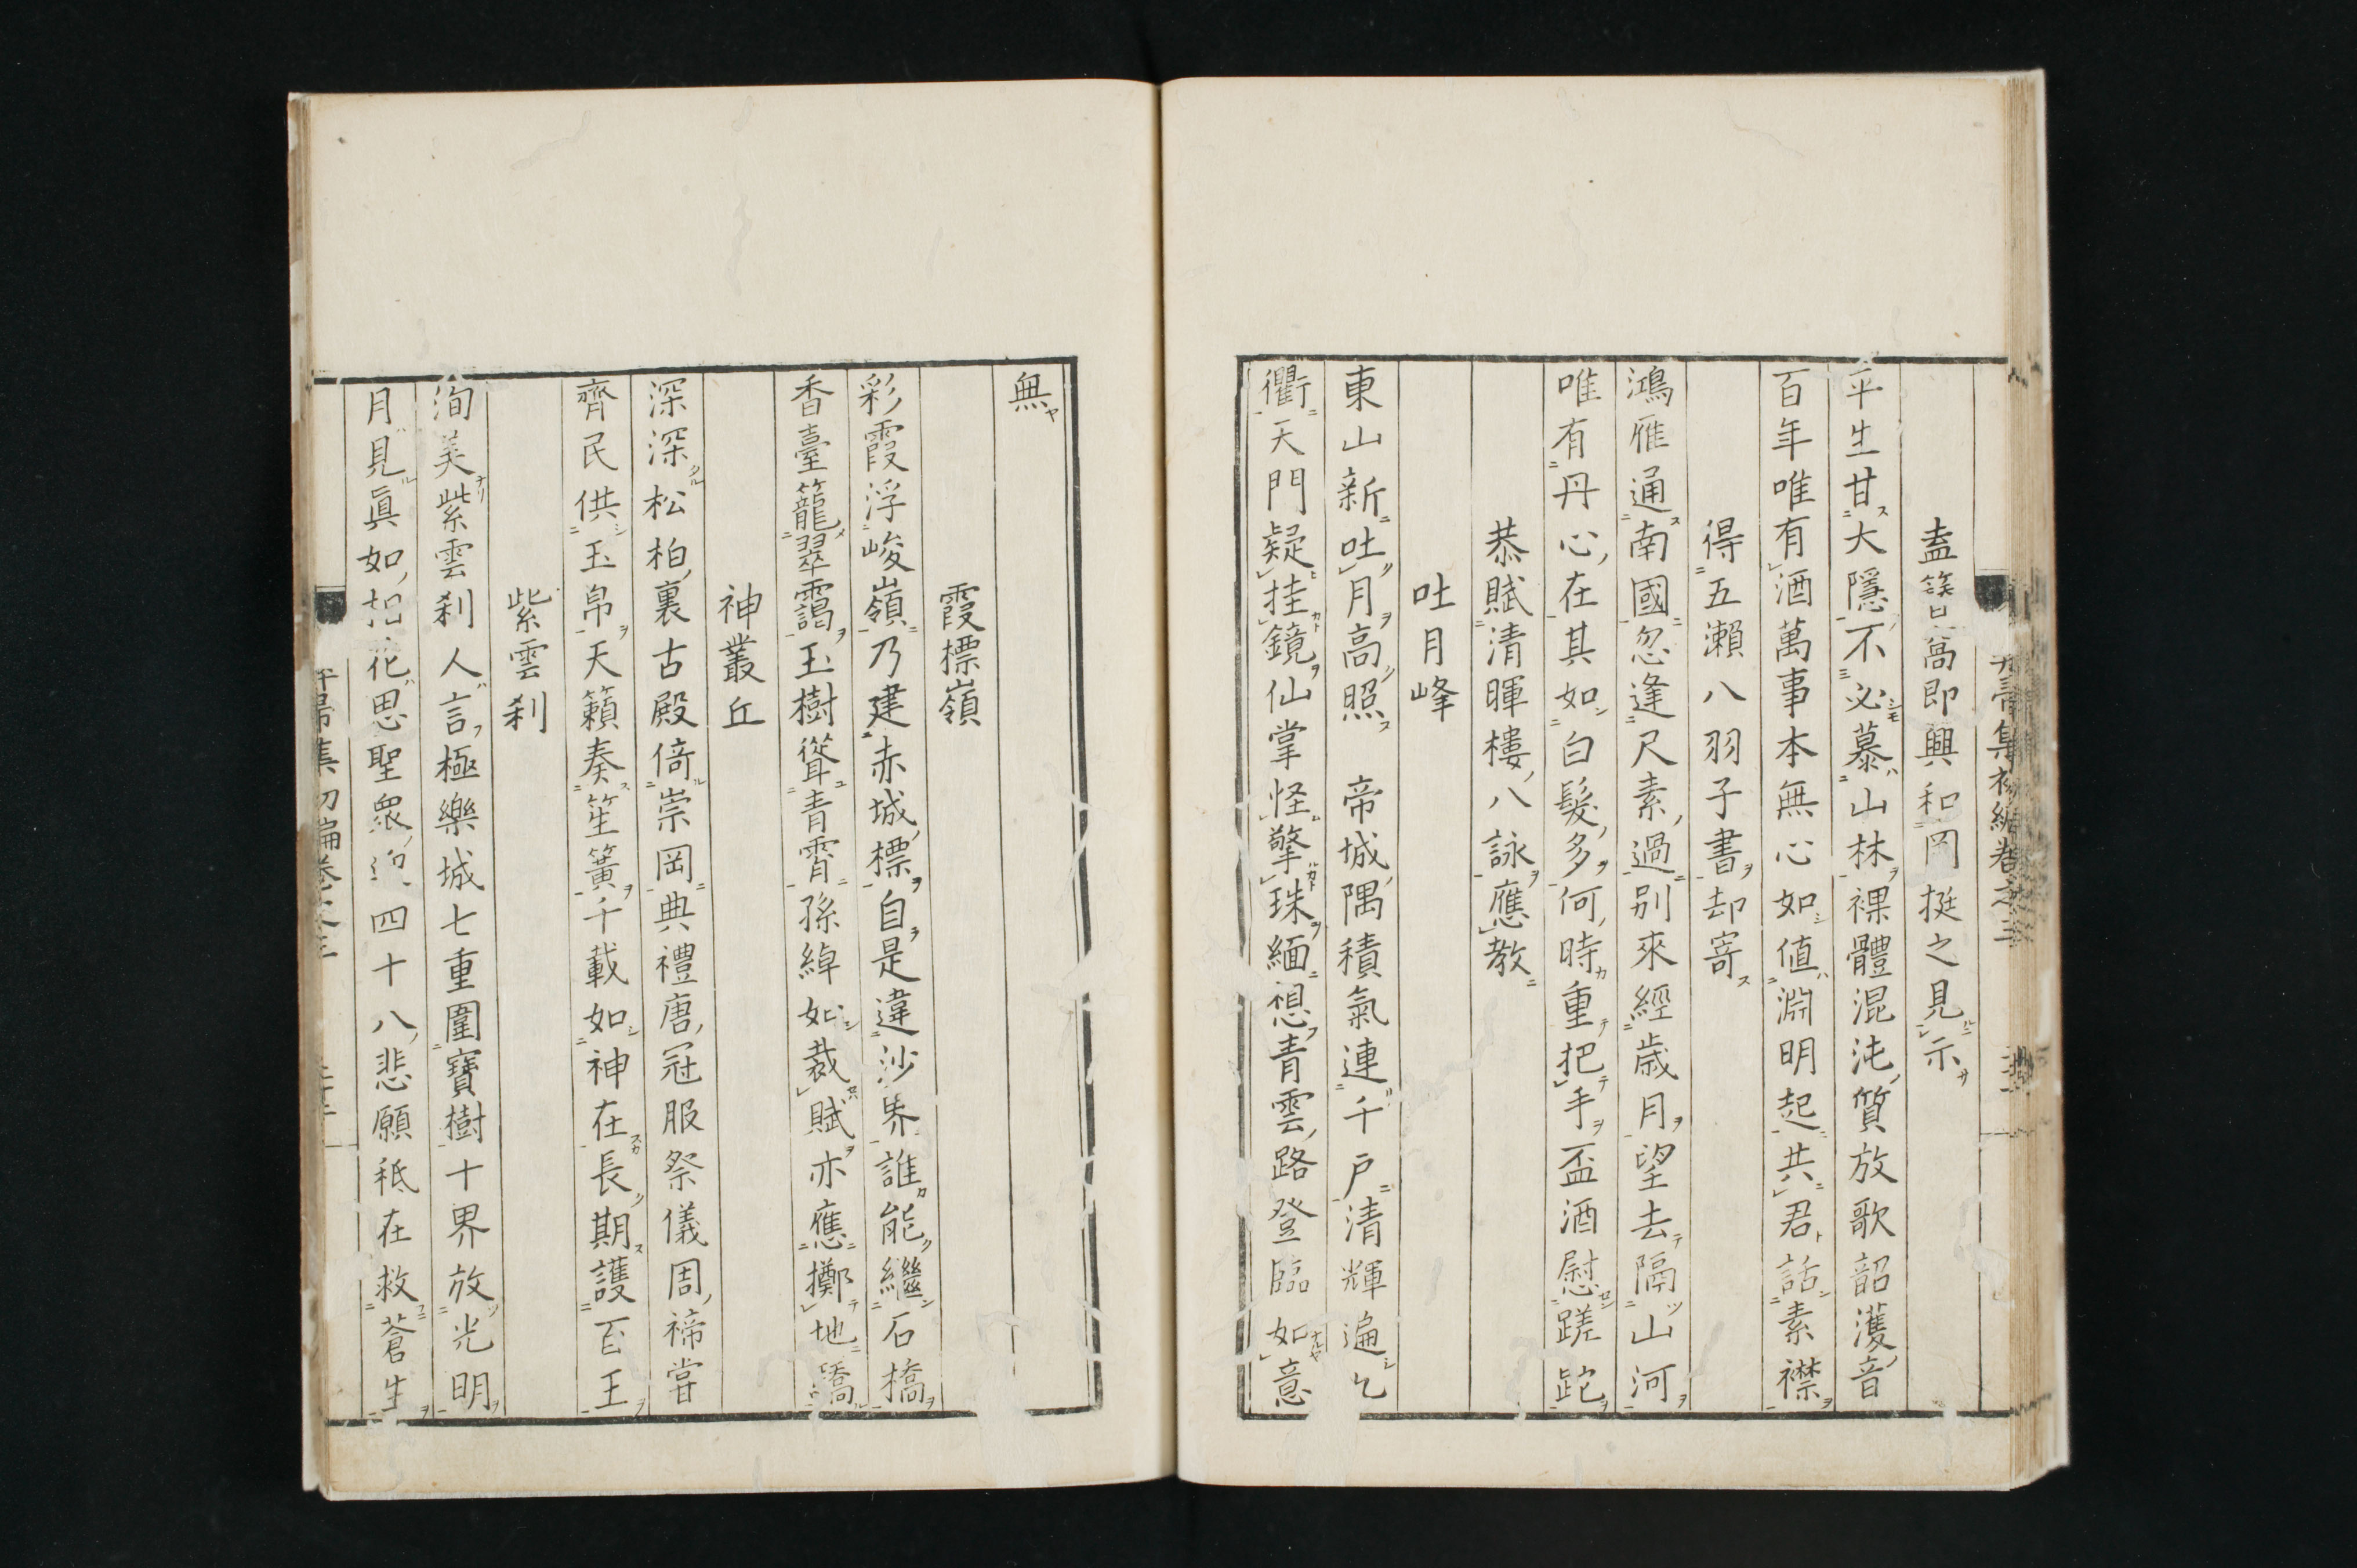 盍簪窩即興和岡挺之見示
平生甘大隱不必慕山林裸體混沌質放歌韶濩音
百年唯有酒萬事本無心如値淵明起共君話素襟
得五瀬八羽子書却寄
鴻雁通南國忽逢尺素過別來經歳月望去隔山河
唯有丹心在其如白髮多何時重把手盃酒慰蹉跎
恭賦清暉樓八詠應教
吐月峰
東山新吐月高照帝城隅積氣連千戸清輝遍九
衢天門疑挂鏡仙掌怪擎珠緬想青雲路登臨如意
無
霞標嶺
彩霞浮峻嶺乃建赤城標自是違沙界誰能繼石橋
香臺籠翠靄玉樹聳青霄孫綽如裁賦亦應擲地驕
神叢丘
深深松柏裏古殿倚崇岡典禮唐冠服祭儀周禘甞
齊民供玉帛天籟奏笙簧千載如神在長期護百王
紫雲刹
洵美紫雲刹人言極樂城七重圍寶樹十界放光明
月見眞如花思聖衆迎四十八悲願秪在救蒼生